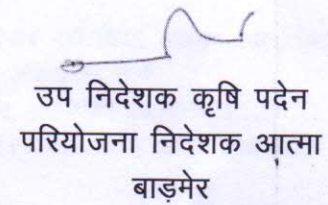 उप निदेशक कृषि पदेन
परियोजना निदेशक आत्मा
बाड़मेर